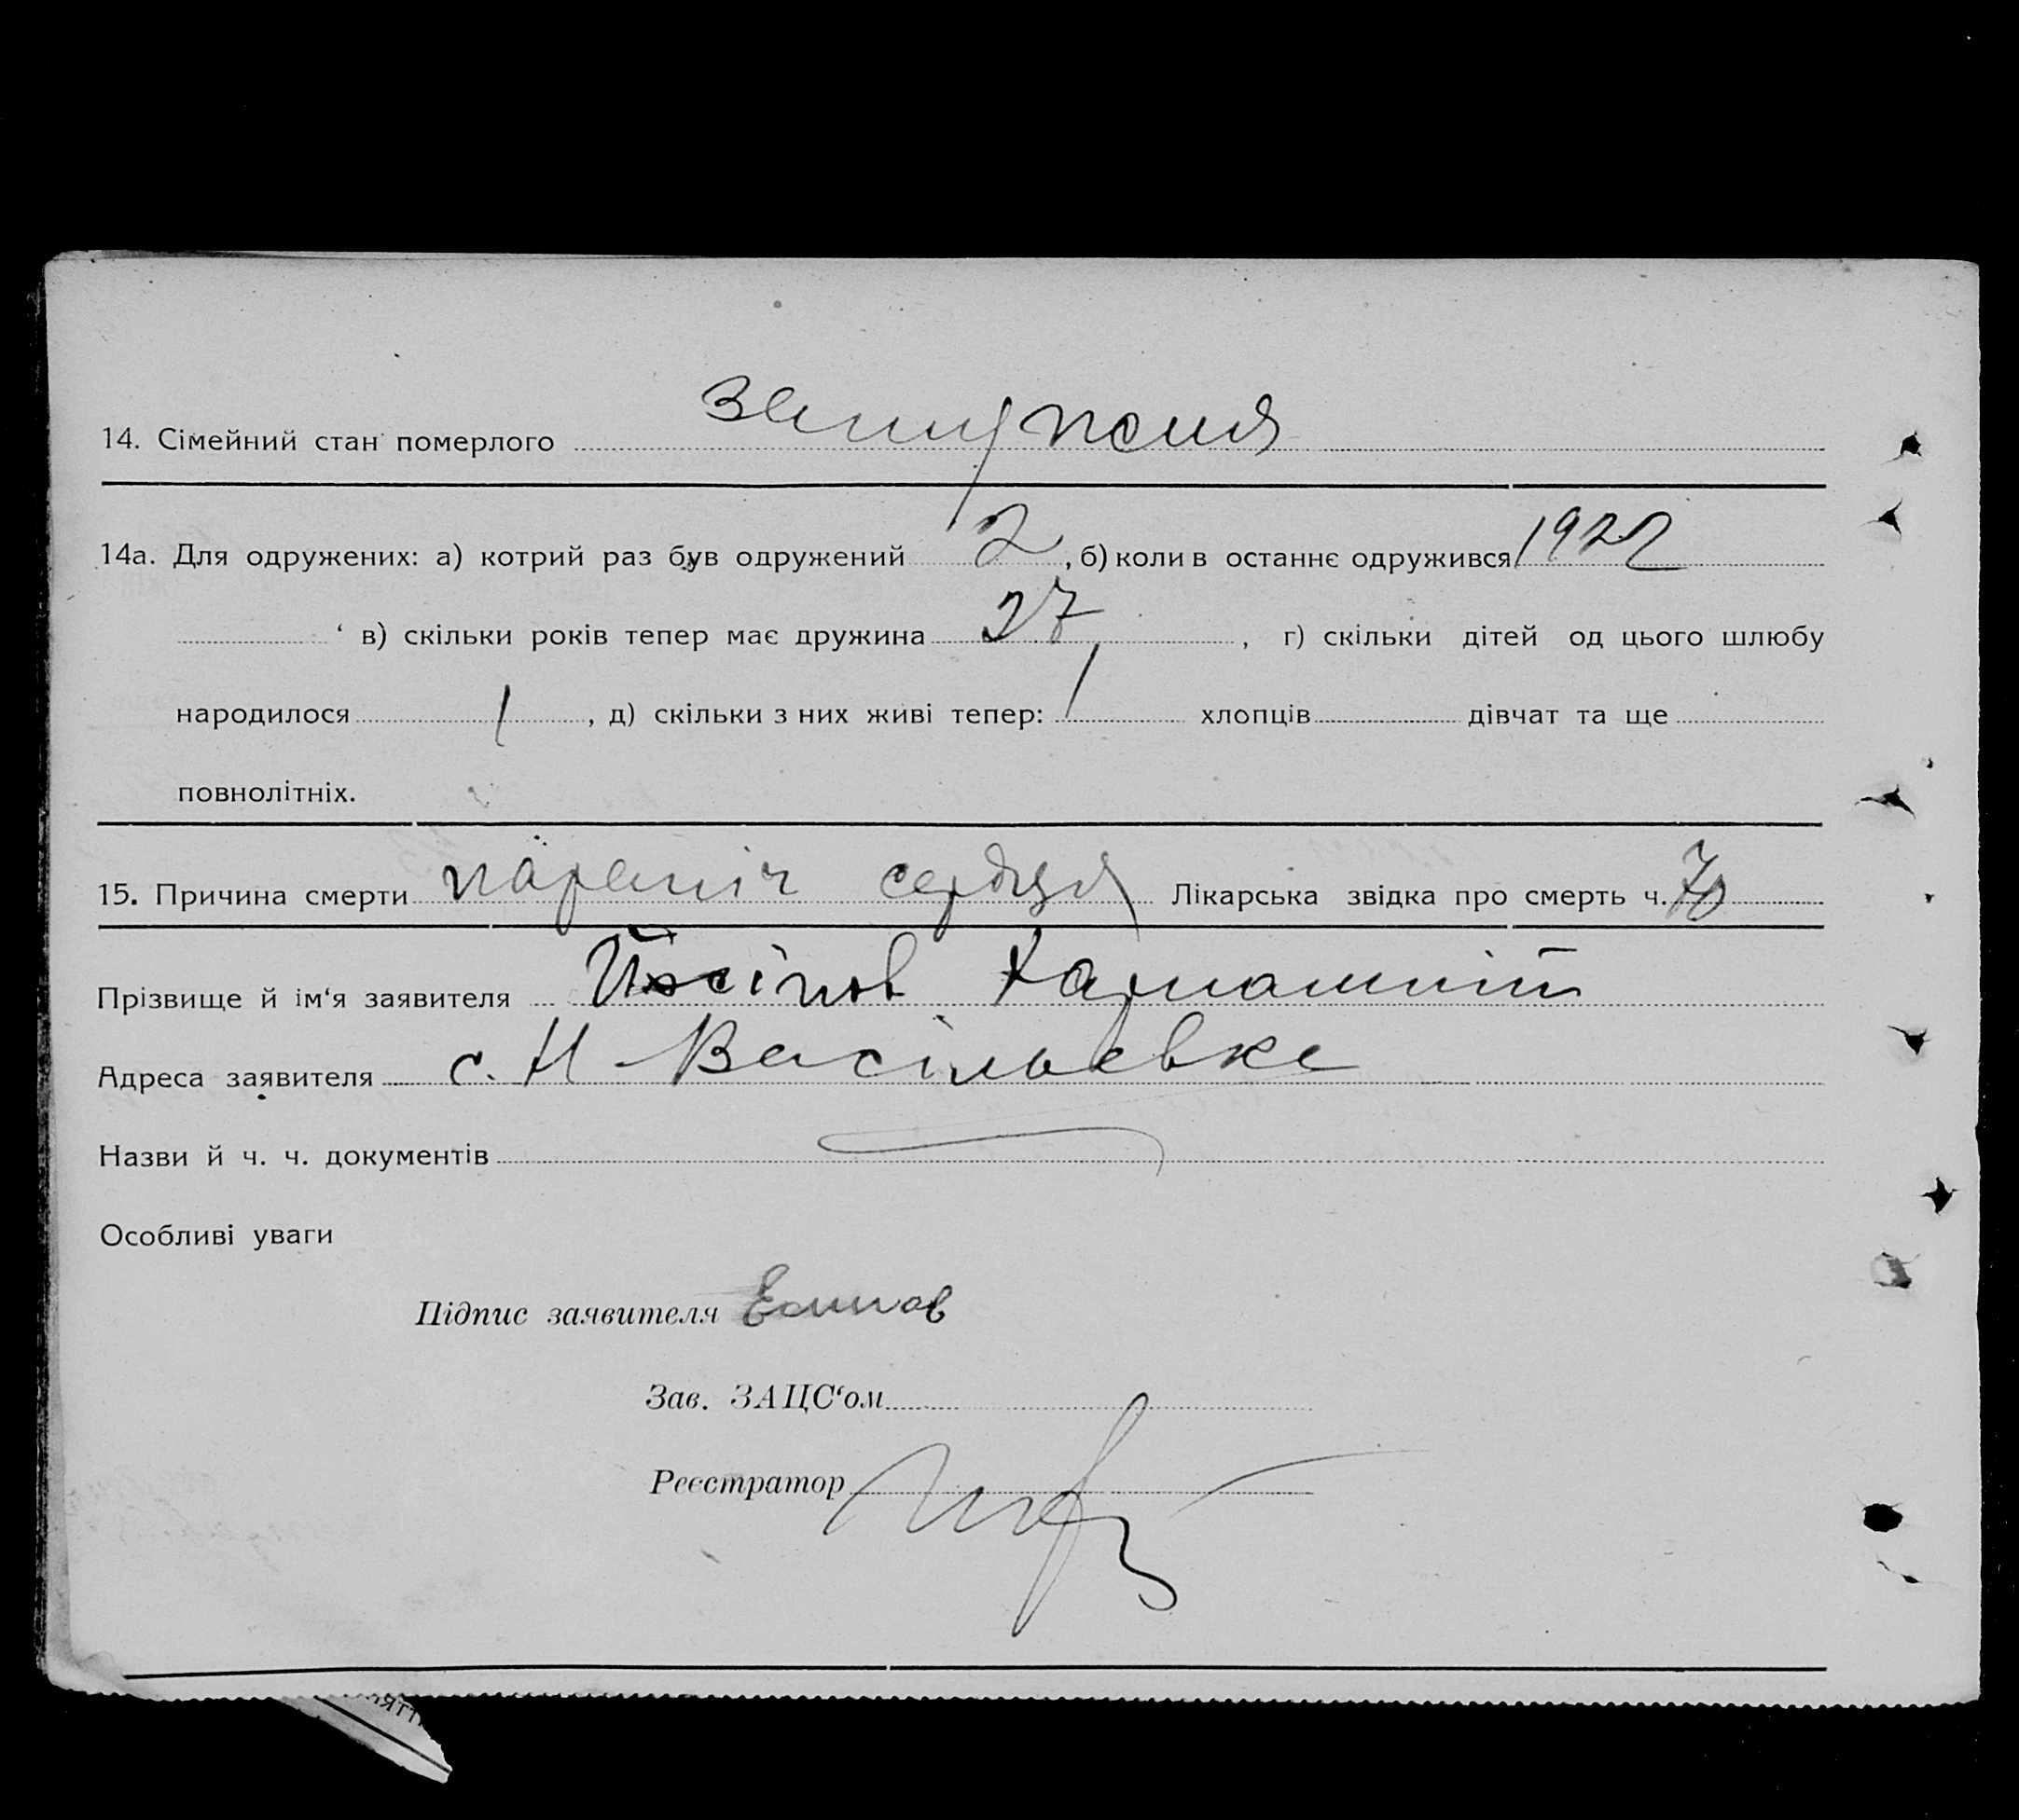 14. Сімейний стан померлого замужняя
14а. Для одружених: а) котрий раз був одружений 2, б) коли в останнє одружився 1922
‘ в) скільки років тепер має дружина 27, г) скільки дітей од цього шлюбу
народилося 1, д) скільки з них живі тепер: 1 хлопців дівчат та ще
повнолітніх.
15. Причина смерти параліч сердця Лікарська звідка про смерть ч. 70
Прізвище й ім‘я заявителя Йосіпов
Адреса заявителя с. Н-Васільевка
Назви й ч. ч. документів
Особливі уваги
Підпис заявителя
Зав. ЗАЦС‘ом
Реєстратор